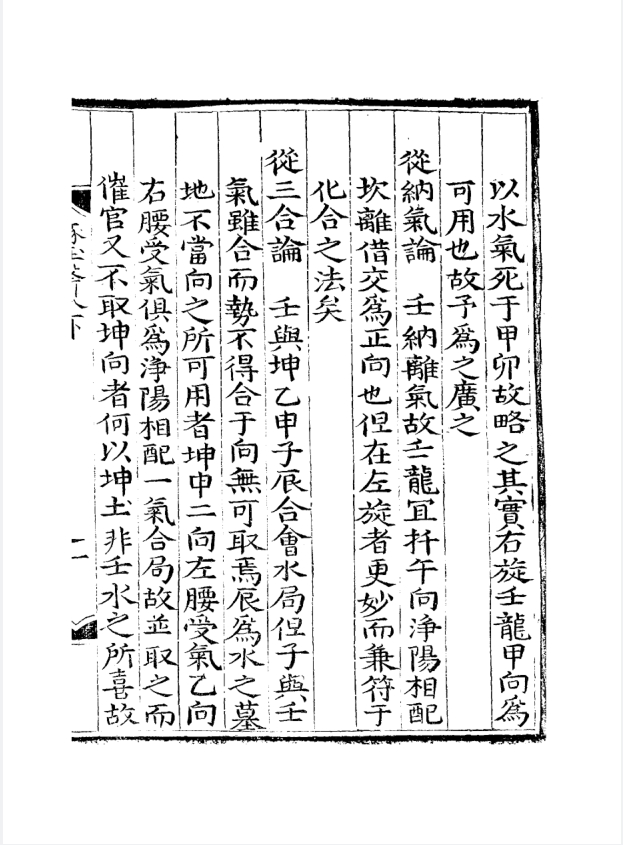 以水氣死于甲卯故略之其實右旋壬龍甲向爲
可用也故予爲之廣之
從納氣論　壬納離氣故壬龍冝扦午向浄陽相配
坎離借交爲正向也但在左旋者更妙而兼符于
化合之法矣
從三合論　壬與坤乙申子辰合會水局但子與壬
氣雖合而勢不得合于向無可取焉辰爲水之墓
地不當向之所可用者坤申二向左腰受氣乙向
右腰受氣俱爲浄陽相配一氣合局故並取之而
催官又不取坤向者何以坤土非壬水之所喜故